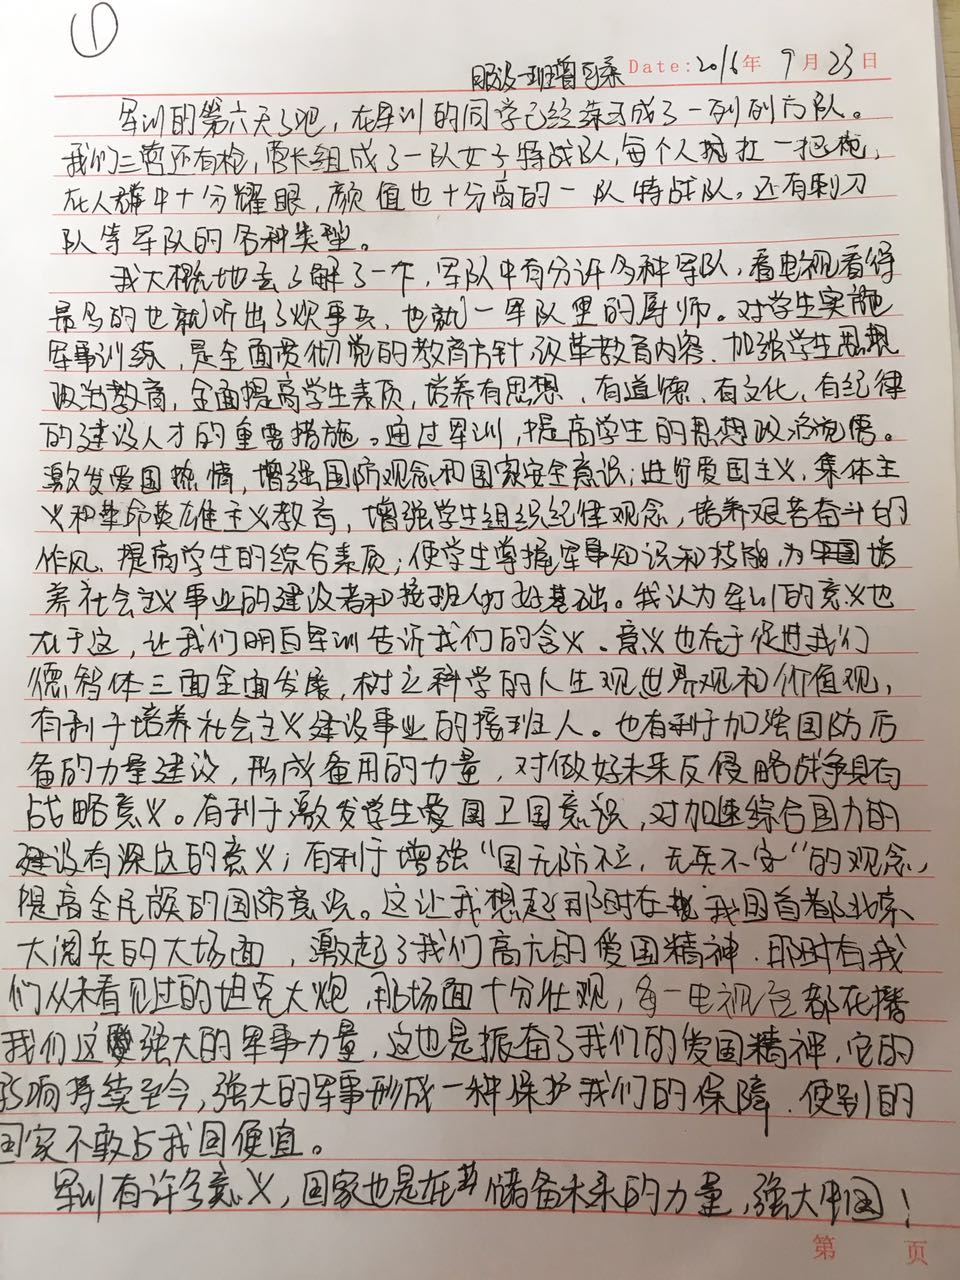 ①
服设一班曾已柔 Date: 2016年 9月 23日
军训的第六天了吧，在军训的同学已经练习成了一列列方队。
我们三营还有枪，营长组成了一队女子特战队，每个人扛一把枪，
在人群中十分耀眼，颜值也十分高的一队特战队。还有刺刀
队等军队的各种类型。
我大概地去了解了一下，军队中有分许多种军队，看电视看得
最多的也就听出了炊事兵，也就一军队里的厨师。对学生实施
军事训练，是全面贯彻党的教育方针，改革教育内容．加强学生思想
政治教育，全面提高学生素质，培养有思想、有道德、有文化、有纪律
的建设人才的重要措施。通过军训，提高学生的思想政治觉悟。
激发爱国热情，增强国防观念和国家安全意识；进行爱国主义，集体主
义和革命英雄主义教育，增强学生组织纪律观念，培养艰苦奋斗的
作风．提高学生的综合素质；使学生掌握军事知识和技能，为中国培
养社会主义事业的建设者和接班人打好基础。我认为军训的意义也
在于这，让我们明白军训告诉我们的含义。意义也在于促进我们
德智体三面全面发展，树立科学的人生观世界观和价值观，
有利于培养社会主义建设事业的接班人。也有利于加强国防后
备的力量建设，形成备用的力量，对做好未来反侵略战争具有
战略意义。有利于激发学生爱国卫国意识，对加速综合国力的
建设有深远的意义；有利于增强“国无防不立，无兵不安”的观念，
提高全民族的国防意识。这让我想起那时在我国首都北京
大阅兵的大场面，激起了我们高亢的爱国精神．那时有我
们从未看见过的坦克大炮，那场面十分壮观，每一电视台都在播
我们这强大的军事力量，这也是振奋了我们的爱国精神，它的
影响持续至今，强大的军事形成一种保护我们的保障．使别的
国家不敢占我国便宜。
军训有许多意义，国家也是在储备未来的力量，强大中国！
第 页